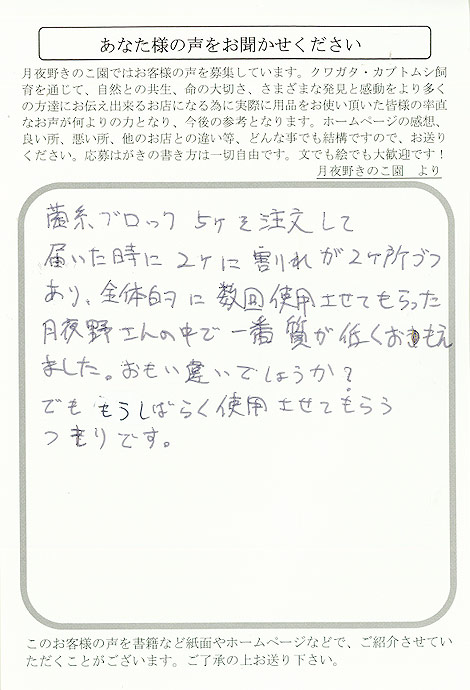 あなた様の声をお聞かせください
月夜野きのこ園ではお客様の声を募集しています。クワガタ・カブトムシ飼
育を通じて、自然との共生、命の大切さ、さまざまな発見と感動をより多く
の方達にお伝え出来るお店になる為に実際に用品をお使い頂いた皆様の率直
なお声が何よりの力となり、今後の参考となります。ホームページの感想、
良い所、悪い所、他のお店との違い等、どんな事でも結構ですので、お送り
ください。応募はがきの書き方は一切自由です。文でも絵でも大歓迎です！
月夜野きのこ園　より
菌糸ブロック 5ヶを注文して
届いた時に 2ヶに割れが2ヶ所づつ
あり、全体的に数回使用させてもらった
月夜野さんの中で一番質が低くおもえ
ました。おもい違いでしょうか？
でももうしばらく使用させてもらう
つもりです。
このお客様の声を書籍など紙面やホームページなどで、ご紹介させてい
ただくことがございます。ご了承の上お送り下さい。